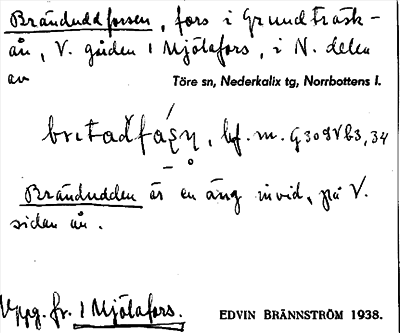 Brändudd forsen, fors i Grundträsk-
ån, V. gården 1 Mjölafors, i N. delen
av Töre sn, Nederkalix tg, Norrbottens l.
bf. m.
Brändudden är en äng invid, på V.
siden ån.
Uppg. fr. 1 Mjölafors. EDVIN BRÄNNSTRÖM 1938.